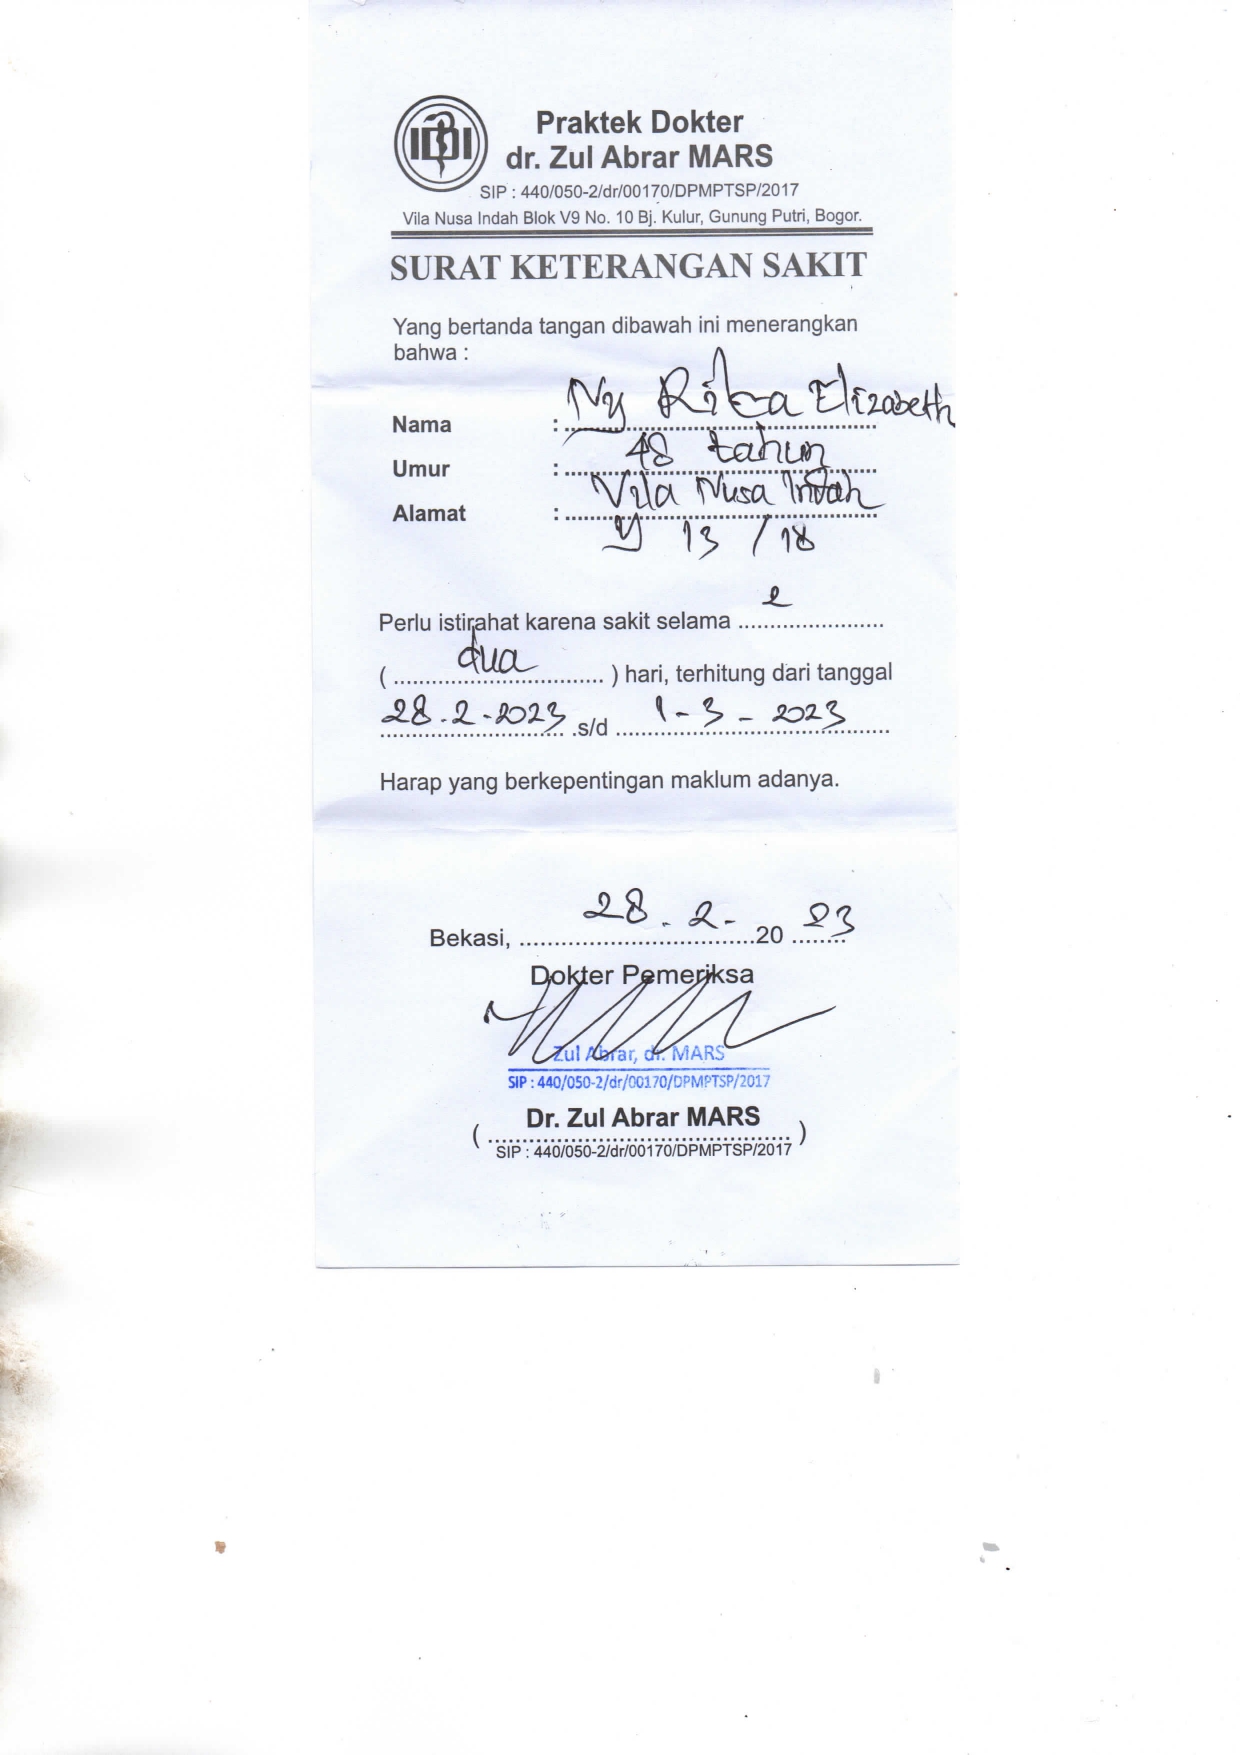 IDI
Praktek Dokter
dr. Zul Abrar MARS
SIP : 440/050-2/dr/00170/DPMPTSP/2017
Vila Nusa Indah Blok V9 No. 10 Bj. Kulur, Gunung Putri, Bogor.
SURAT KETERANGAN SAKIT
Yang bertanda tangan dibawah ini menerangkan
bahwa :
Nama : Ny Rika Elizabeth
Umur : 48 tahun
Alamat : Vila Nusa Indah
Y 13 / 18
Perlu istirahat karena sakit selama 2
( dua ) hari, terhitung dari tanggal
28.2-2023 .s/d 1-3-2023
Harap yang berkepentingan maklum adanya.
Bekasi, 28.2- 20 23
Dokter Pemeriksa
Zul Abrar, dr. MARS
SIP : 440/050-2/dr/00170/DPMPTSP/2017
( Dr. Zul Abrar MARS )
SIP : 440/050-2/dr/00170/DPMPTSP/2017